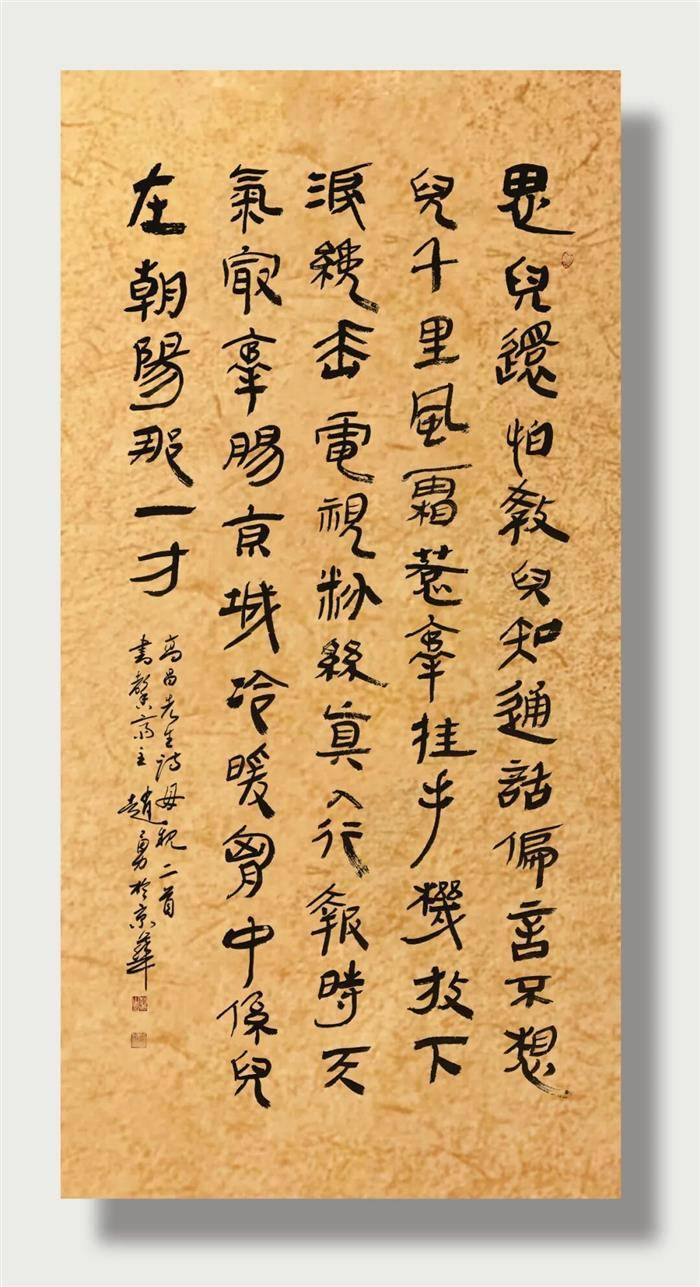 思兒還怕教兒知通話偏言不想
兒千里風霜惹牽挂手機放下
淚纔垂電視粉絲真入行報時天
氣最牽腸京城冷暖胸中係兒
在朝陽那一方
高昌先生詩母親二首
書馨齋主趙勇於京華